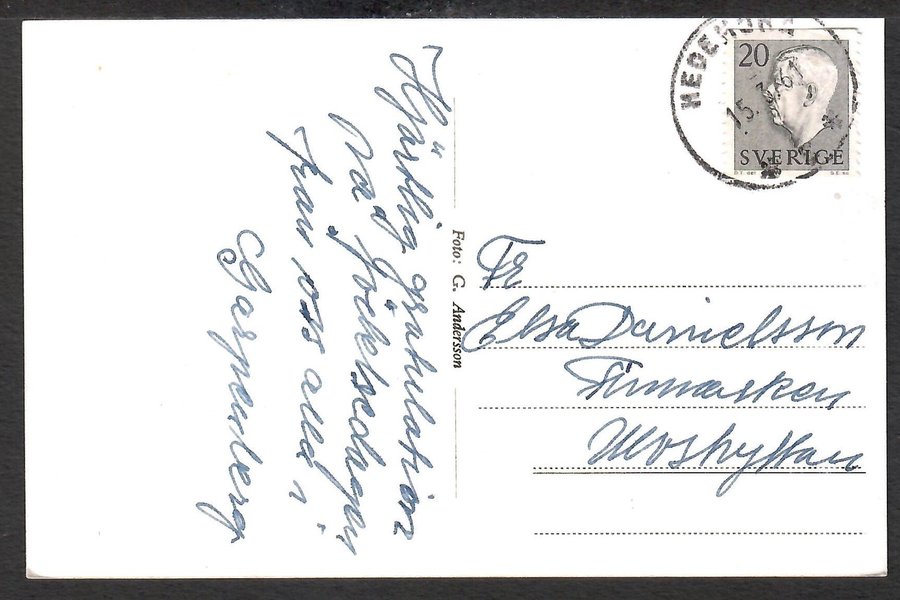 Hjärtlig gratulation
på födelsedagen
från oss alla i
Garpenberg
Foto: G. Andersson
HEDEMORA
15.3.61
20
SVERIGE
Fr
Elsa Danielsson
Finnmarken
Ulvshyttan